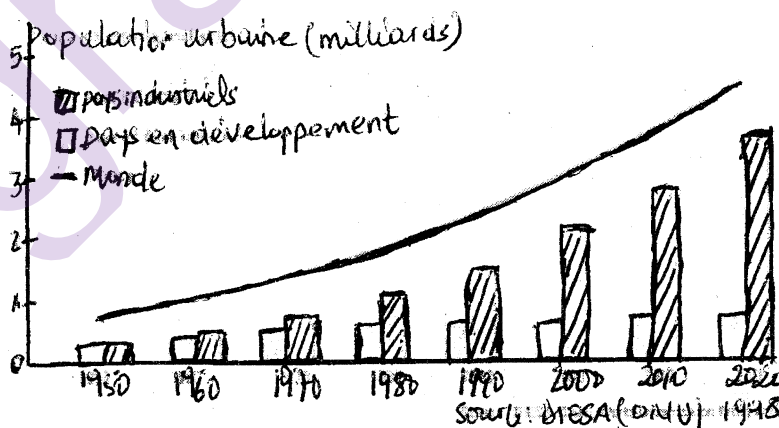 Population urbaine (milliards)
5
pays industriels
4
Pays en développement
3 — Monde
2
1
0
1950 1960 1970 1980 1990 2000 2010 2020
Source: DIESA (ONU) 1948